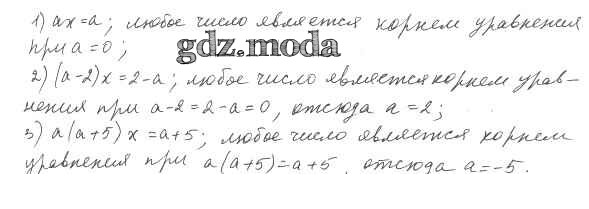 1) ax=a; любое число является корнем уравнения
при a=0;
gdz.moda
2) (a-2)x=2-a; любое число является корнем урав-
нения при a-2=2-a=0, отсюда a=2;
3) a(a+5)x=a+5; любое число является корнем
уравнения при a(a+5)=a+5, отсюда a=-5.